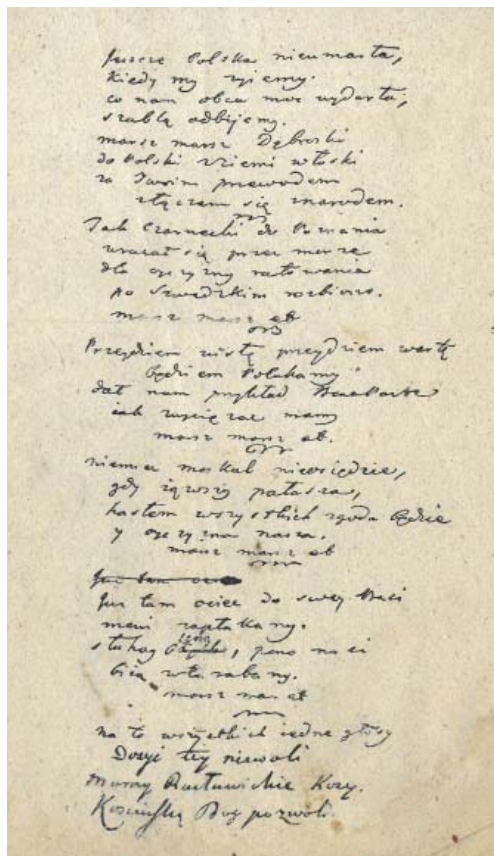 Jeszcze Polska nieumarła,
kiedy my żyiemy.
co nam obca moc wydarła,
szablą odbijemy.
marsz marsz Dąbroski
do Polski z ziemi włoski
za Twoim przewodem
złączem się znarodem.
Jak Czarnecki do Poznania
wracał się przez morze
dla oyczyzny ratowania
po Szwedzkim rozbiorze.
marsz marsz et
Przeydziem wisłę przeydziem wartę
będziem Polakamy
dał nam przykład Bonaparte
iak zwycięzać mamy
marsz marsz et.
niemiec moskal nieosiędzie,
gdy iąwszy pałasza,
hasłem wszystkich zgoda będzie
y oyczyzna nasza.
marsz marsz et
Już tam ociec
Już tam ociec do swey Basi
mowi zapłakany.
słuchay, pono nasi
biią wtarabany.
marsz mar et
na to wszystkich iedne głosy
Dosyć tey niewoli
mamy Racławickie Kosy.
Kosciuszkę Bog pozwoli.